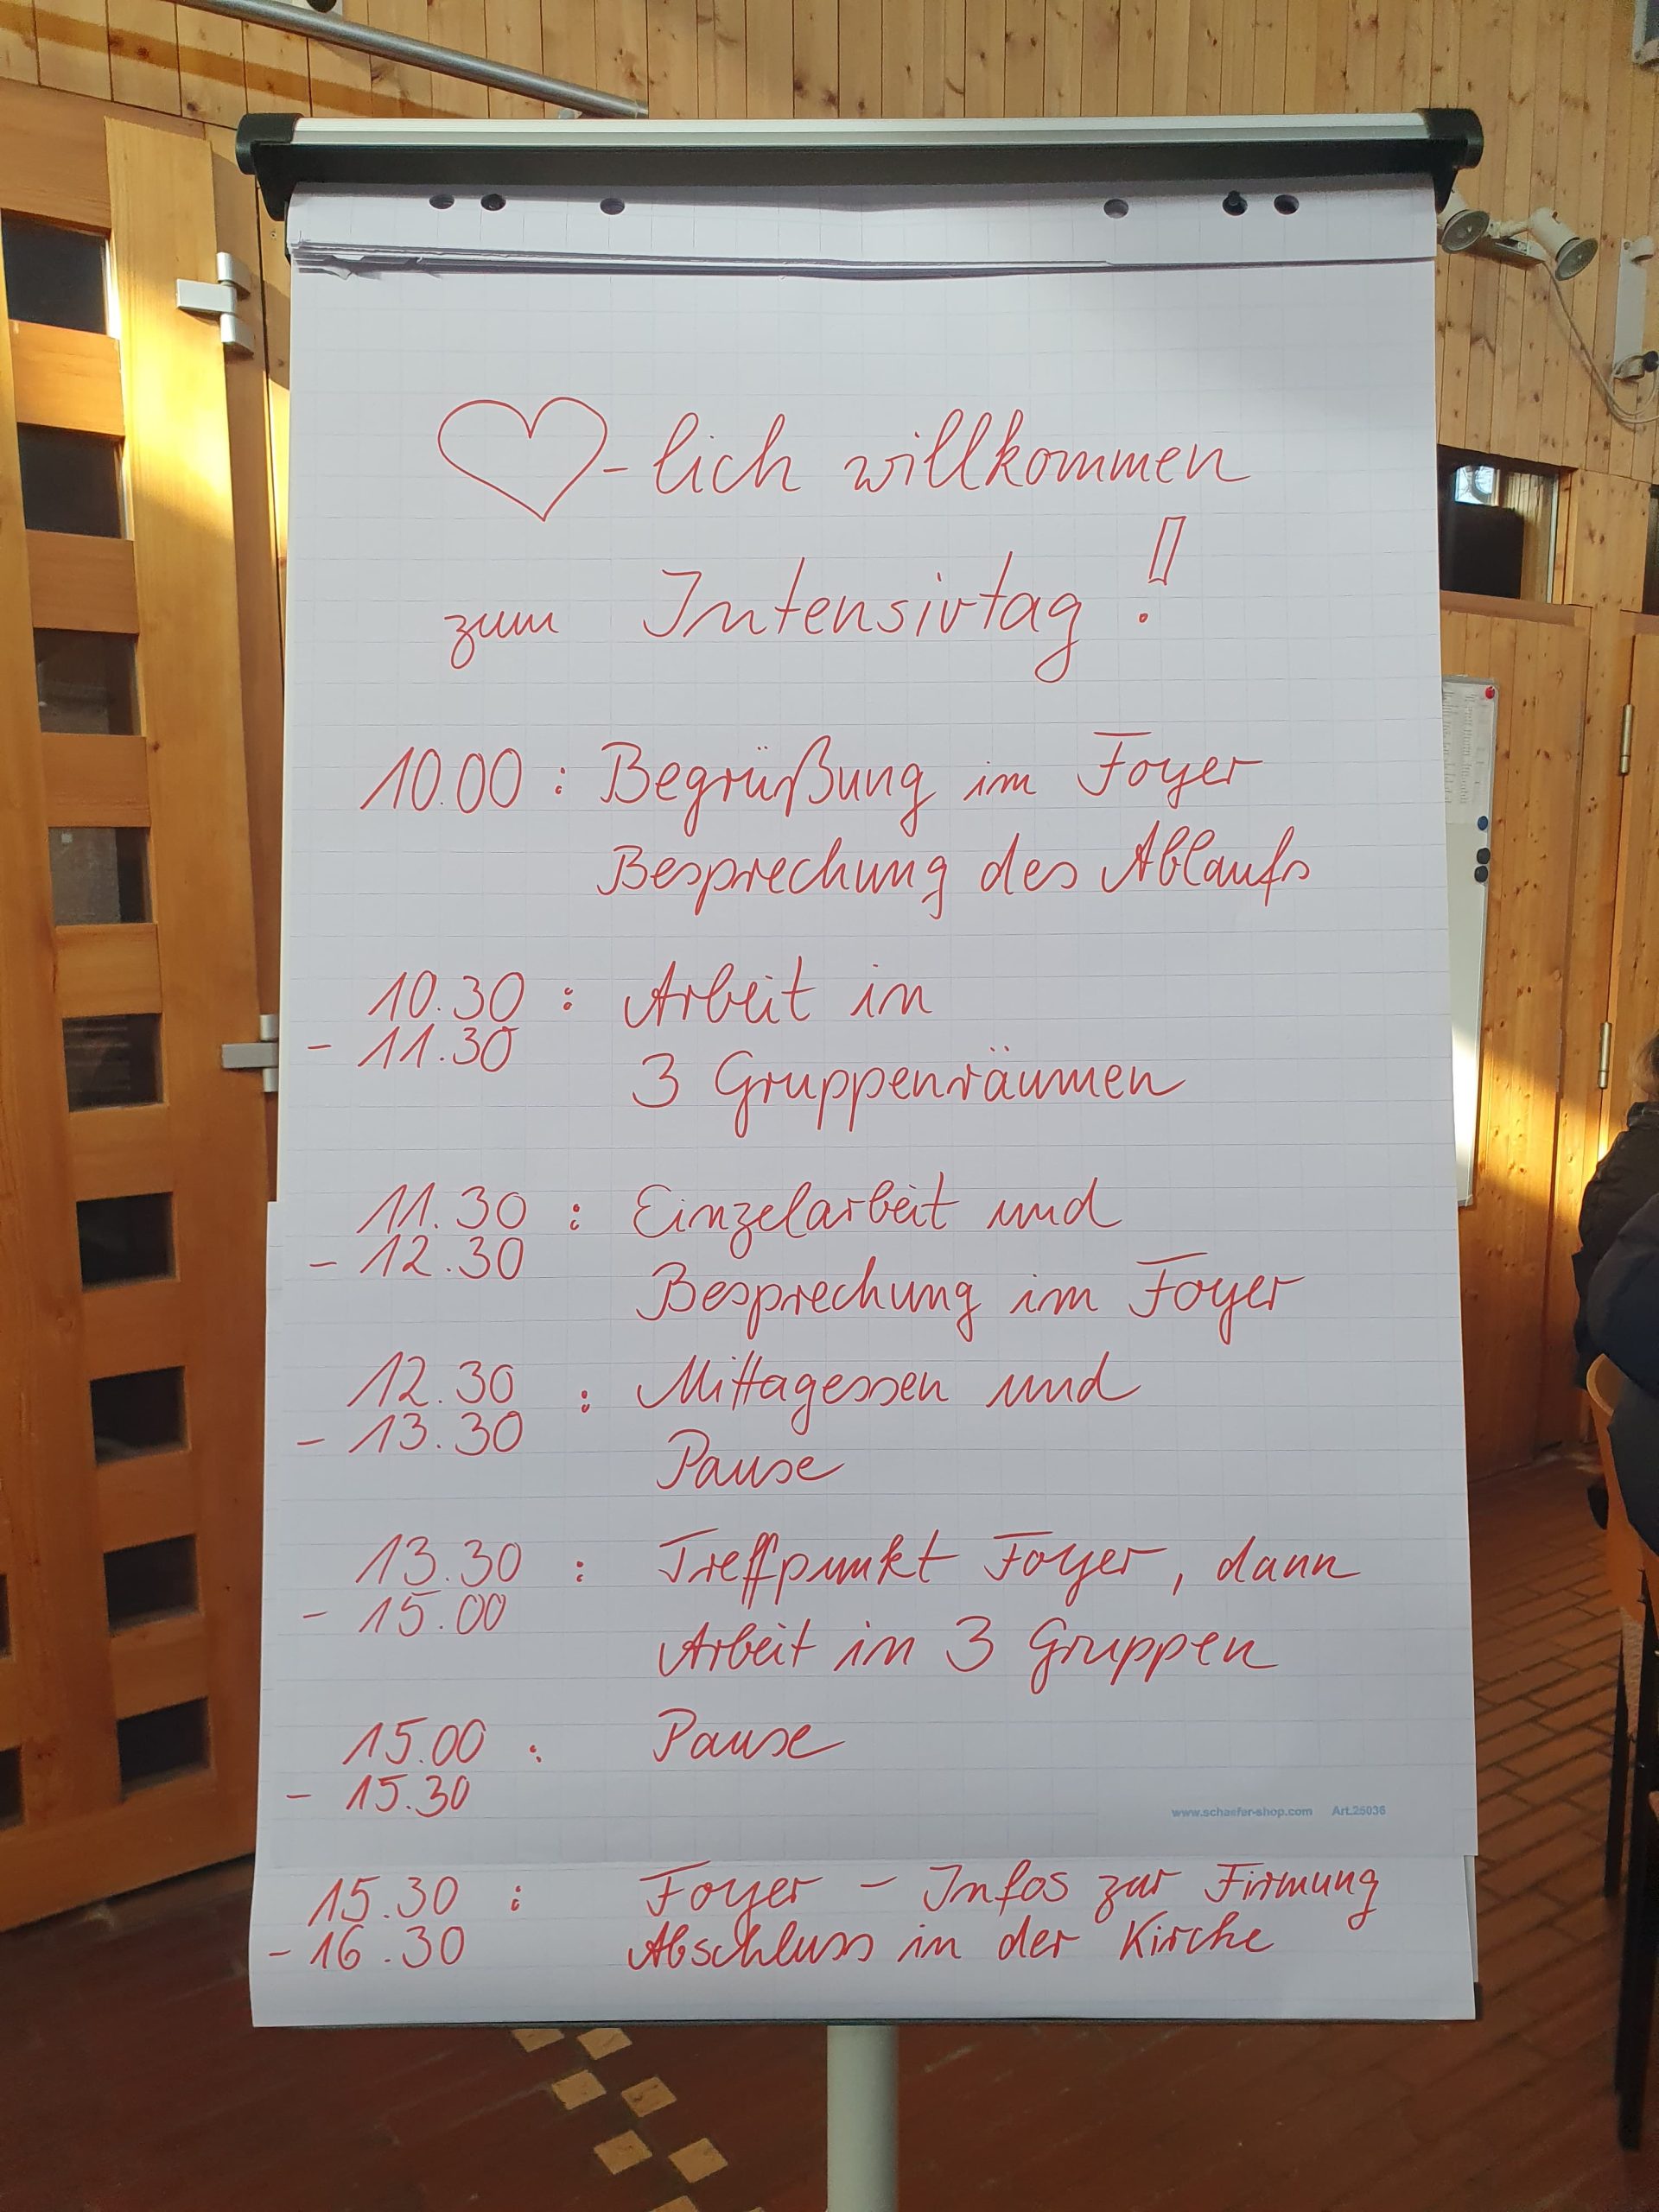 ♡-lich willkommen
zum Intensivtag!
10.00 : Begrüßung im Foyer
Besprechung des Ablaufs
10.30 : Arbeit in
- 11.30
3 Gruppenräumen
11.30 : Einzelarbeit und
- 12.30
Besprechung im Foyer
12.30 : Mittagessen und
- 13.30
Pause
13.30 : Treffpunkt Foyer, dann
- 15.00
Arbeit in 3 Gruppen
15.00 : Pause
- 15.30
www.schaefer-shop.com Art.25036
15.30 : Foyer - Infos zur Firmung
- 16.30 Abschluss in der Kirche